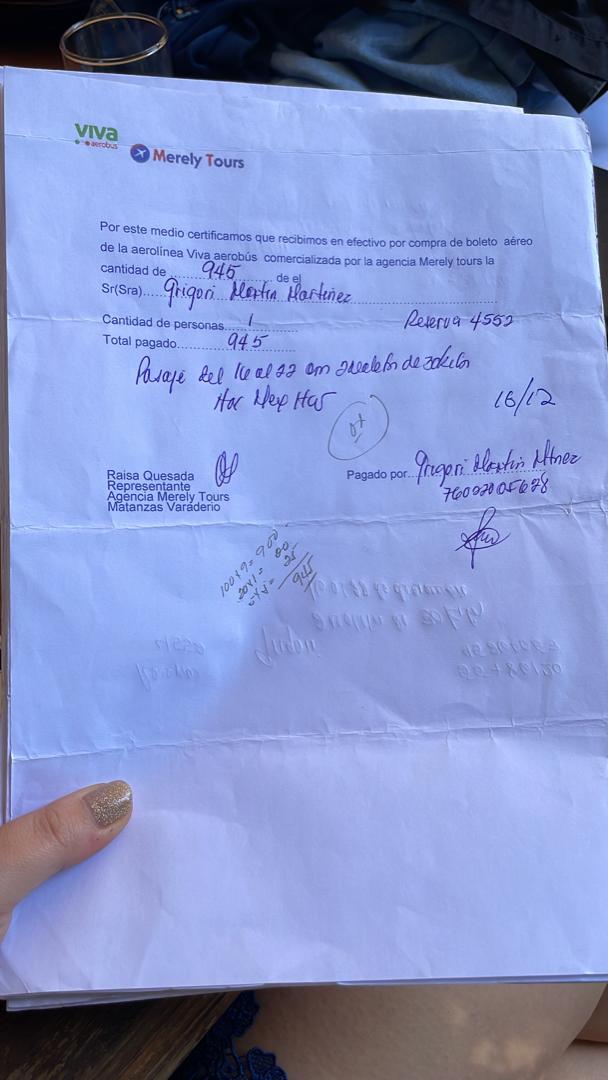 viva
aerobus
Merely Tours
Por este medio certificamos que recibimos en efectivo por compra de boleto aéreo
de la aerolínea Viva aerobús comercializada por la agencia Merely tours la
cantidad de 945 de el
Sr(Sra) Grigori Martin Martinez
Cantidad de personas 1
Reserva 4552
Total pagado 945
Pasaje del 16 al 22 con de
Hav Mex Hav
16/12
Raisa Quesada
Representante
Agencia Merely Tours
Matanzas Varadero
Pagado por Grigori Martin Mtnez
100x9=900
945